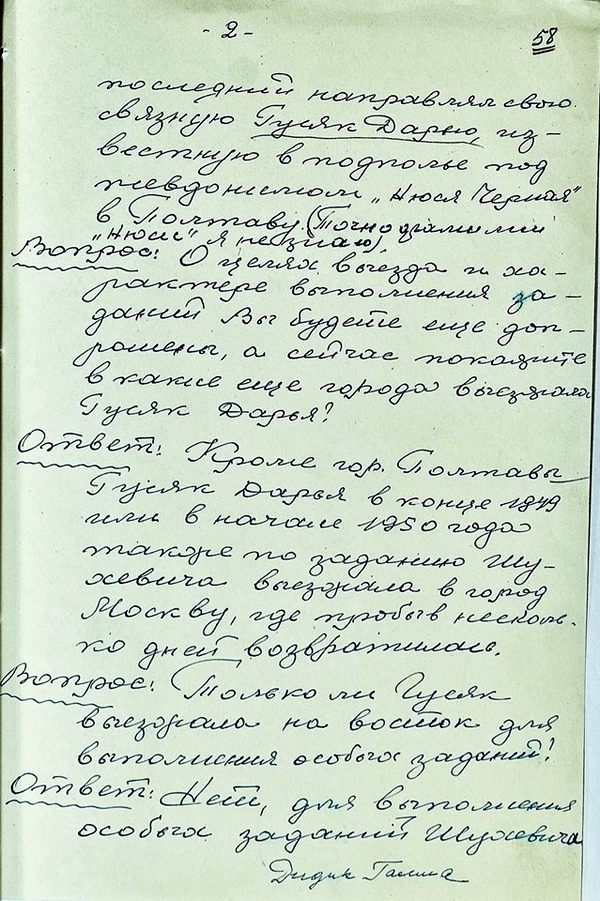 - 2 -
58
последний направлял свою
связную Гусяк Дарью, из-
вестную в подполье под
псевдонимом „Нюся Черная"
в Полтаву. (Точно фамилии
„Нюси" я не знаю).
Вопрос: О целях выезда и ха-
рактере выполнения за-
даний Вы будете еще доп-
рошены, а сейчас покажите
в какие еще города выезжала
Гусяк Дарья?
Ответ: Кроме гор. Полтавы
Гусяк Дарья в конце 1949
или в начале 1950 года
также по заданию Шу-
хевича выезжала в город
Москву, где пробыв несколь-
ко дней возвратилась.
Вопрос: Только ли Гусяк
выезжала на восток для
выполнения особых заданий?
Ответ: Нет, для выполнения
особых заданий Шухевича
Дидик Галина